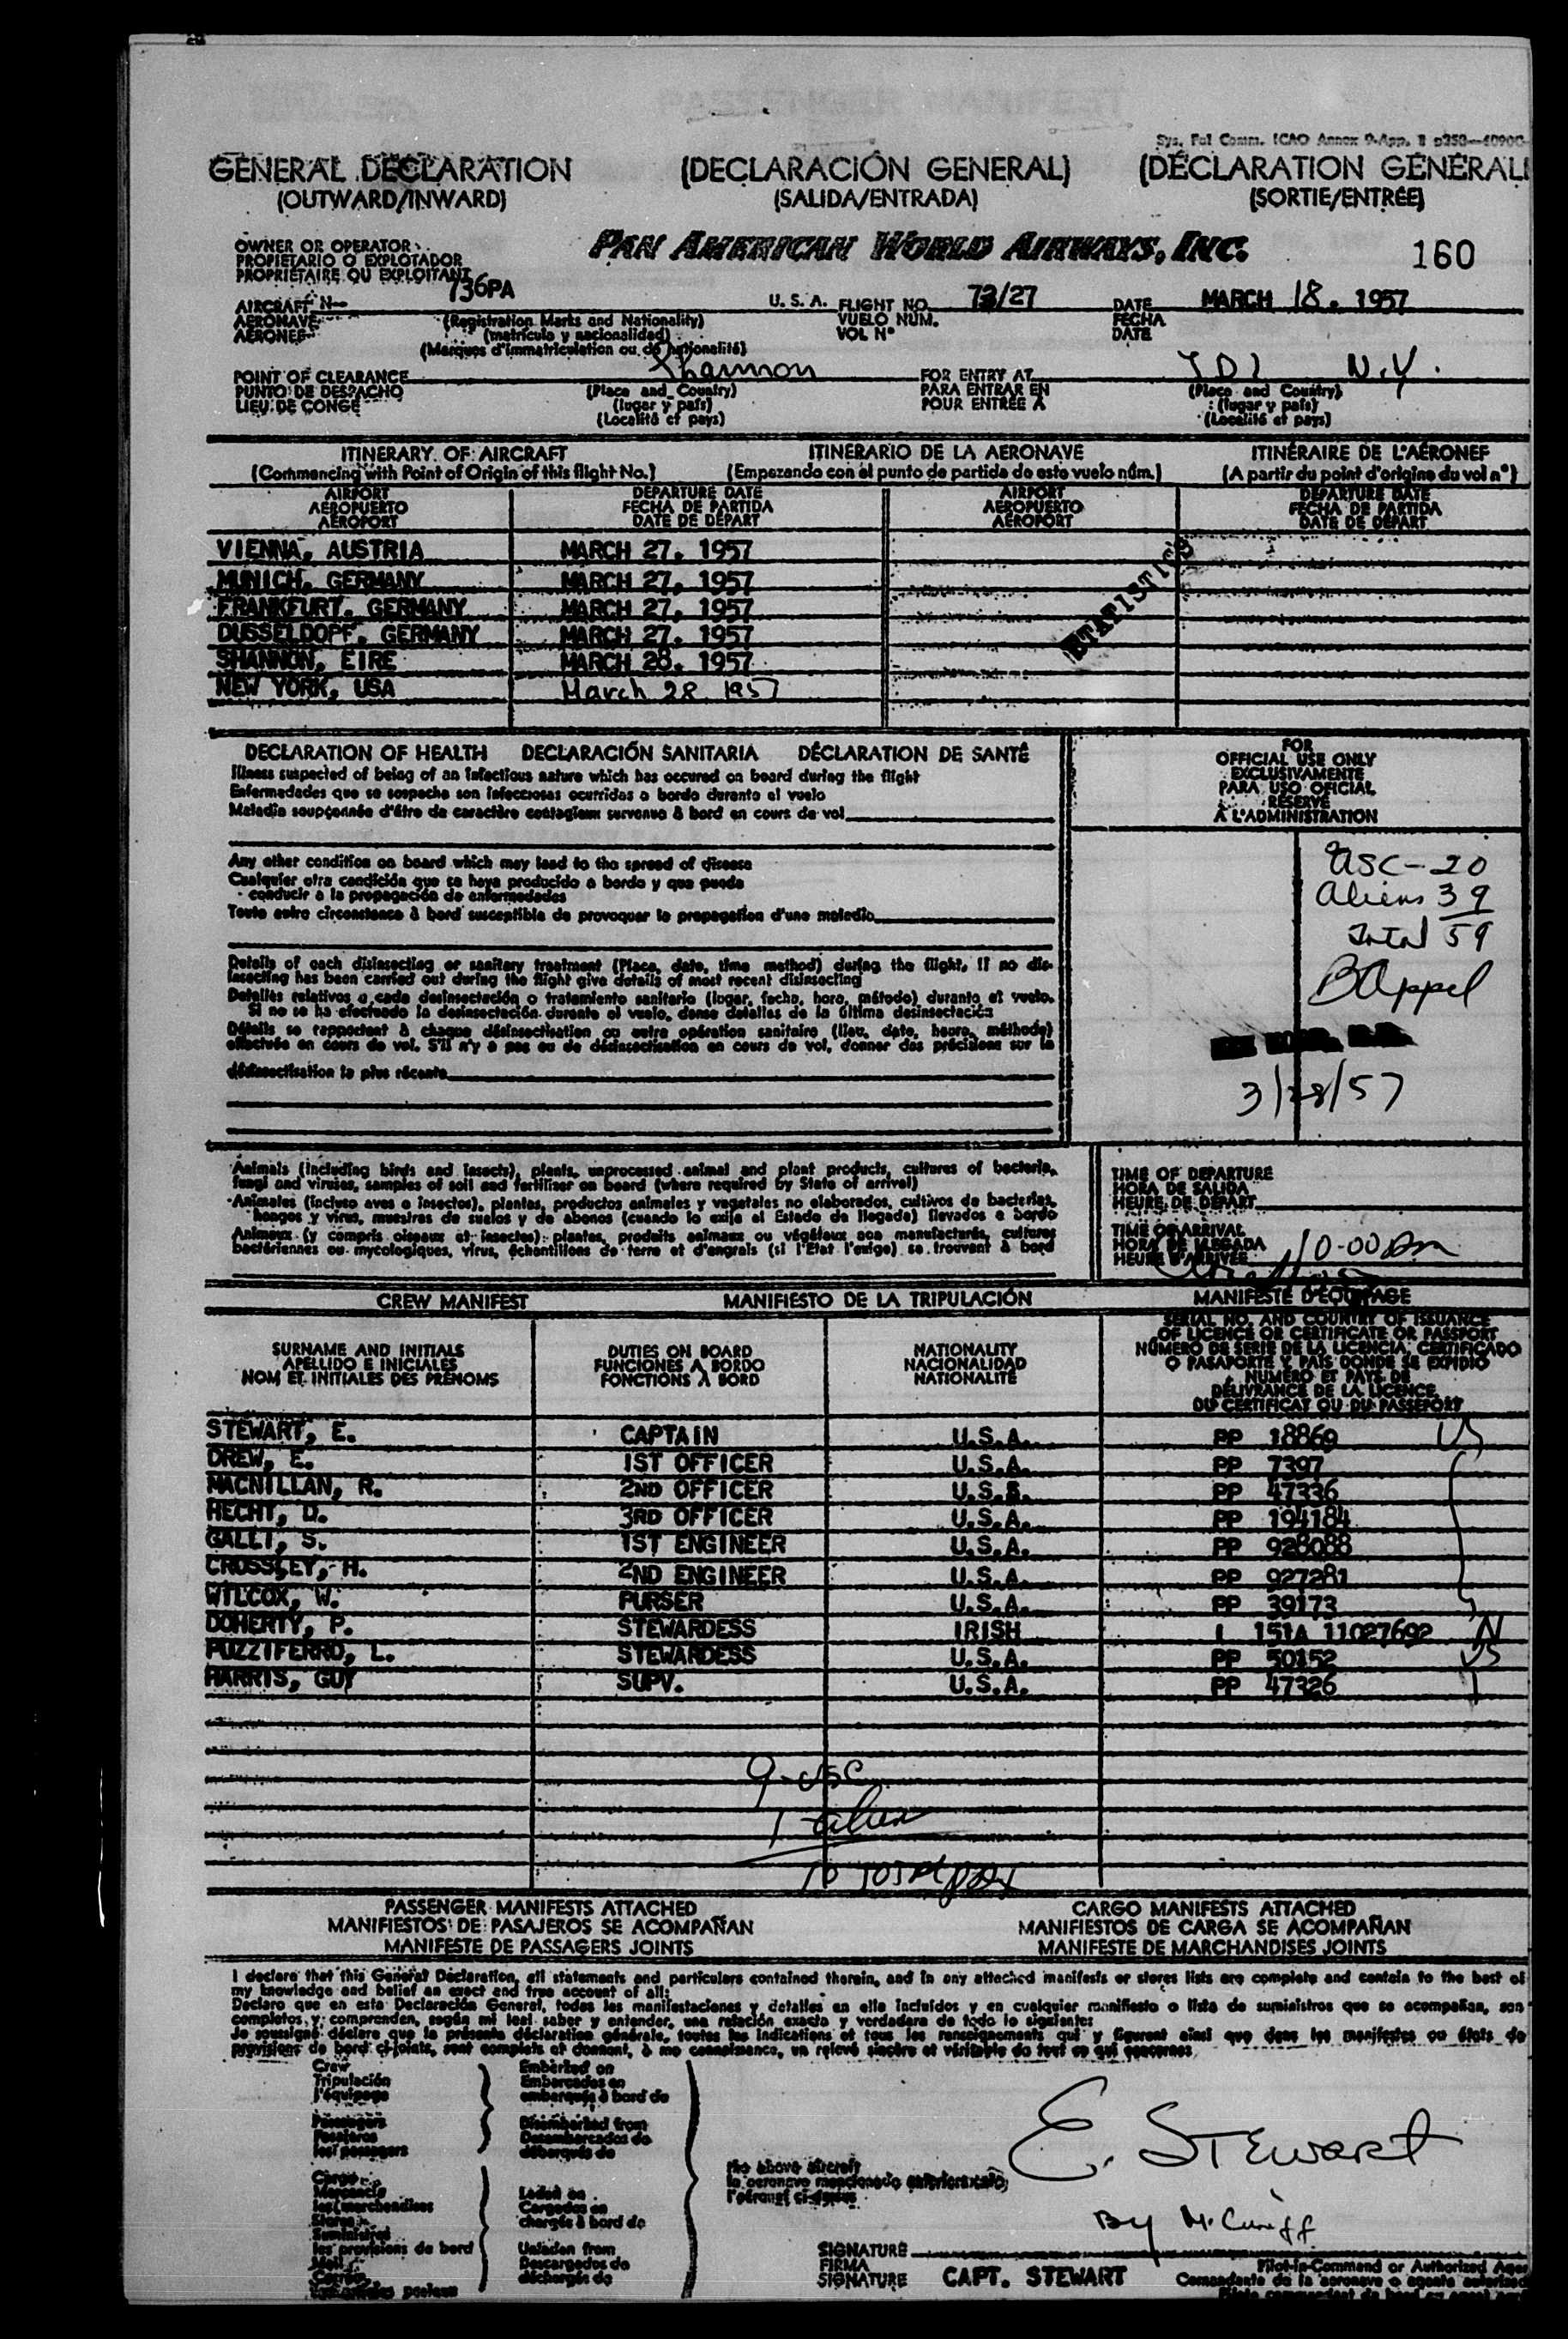 Sys. Ful Comm. ICAO Annex 9-App. B p350—
GENERAL DECLARATION (DECLARACIÓN GENERAL) (DÉCLARATION GÉNÉRAL
(OUTWARD/INWARD) (SALIDA/ENTRADA) (SORTIE/ENTRÉE)
OWNER OR OPERATOR
PROPIETARIO O EXPLOTADOR
PROPRIÉTAIRE OU EXPLOITANT
PAN AMERICAN WORLD AIRWAYS, INC. 160
AIRCRAFT N— 736PA U.S.A. FLIGHT NO. 73/27 DATE MARCH 18. 1957
AERONAVE (Registration Marks and Nationality) VUELO NÚM. FECHA
AÉRONEF (matrícula y nacionalidad) VOL N° DATE
(Marques d'immatriculation ou de nationalité)
POINT OF CLEARANCE Shannon FOR ENTRY AT IDI N.Y.
PUNTO DE DESPACHO (Place and Country) PARA ENTRAR EN (Place and Country)
LIEU DE CONGÉ (lugar y país) POUR ENTRÉE À (lugar y país)
(Localité et pays) (Localité et pays)
ITINERARY OF AIRCRAFT ITINERARIO DE LA AERONAVE ITINÉRAIRE DE L'AÉRONEF
(Commencing with Point of Origin of this flight No.) (Empezando con el punto de partida de este vuelo núm.) (A partir du point d'origine du vol n°)
AIRPORT DEPARTURE DATE AIRPORT DEPARTURE DATE
AEROPUERTO FECHA DE PARTIDA AEROPUERTO FECHA DE PARTIDA
AÉROPORT DATE DE DÉPART AÉROPORT DATE DE DÉPART
VIENNA, AUSTRIA MARCH 27. 1957
MUNICH, GERMANY MARCH 27. 1957
FRANKFURT, GERMANY MARCH 27. 1957
DUSSELDOPF, GERMANY MARCH 27. 1957
SHANNON, EIRE MARCH 28. 1957
NEW YORK, USA March 28 1957
STATISTICS
DECLARATION OF HEALTH DECLARACIÓN SANITARIA DÉCLARATION DE SANTÉ
Illness suspected of being of an infectious nature which has occured on board during the flight
Enfermedades que se sospecha son infecciosas ocurridas a bordo durante el vuelo
Maladie soupçonnée d'être de caractère contagieux survenue à bord en cours de vol
Any other condition on board which may lead to the spread of disease
Cualquier otra condición que se haya producido a bordo y que pueda
conducir a la propagación de enfermedades
Toute autre circonstance à bord susceptible de provoquer la propagation d'une maladie
Details of each disinsecting or sanitary treatment (Place, date, time method) during the flight. If no dis-
insecting has been carried out during the flight give details of most recent disinsecting
Detalles relativos a cada desinsectación o tratamiento sanitario (lugar, fecha, hora, método) durante el vuelo.
Si no se ha efectuado la desinsectación durante el vuelo, dense detalles de la última desinsectación
Détails se rapportant à chaque désinsectisation ou autre opération sanitaire (lieu, date, heure, méthode)
effectuée en cours de vol. S'il n'y a pas eu de désinsectisation en cours de vol, donner des précisions sur la
désinsectisation la plus récente
FOR
OFFICIAL USE ONLY
EXCLUSIVAMENTE
PARA USO OFICIAL
RÉSERVÉ
À L'ADMINISTRATION
USC-20
Aliens 39
Total 59
B Appel
3/28/57
Animals (including birds and insects), plants, unprocessed animal and plant products, cultures of bacteria,
fungi and viruses, samples of soil and fertilizer on board (where required by State of arrival)
Animales (incluso aves e insectos), plantas, productos animales y vegetales no elaborados, cultivos de bacterias,
hongos y virus, muestras de suelos y de abonos (cuando lo exija el Estado de llegada) llevados a bordo
Animaux (y compris oiseaux et insectes) plantes, produits animaux ou végétaux non manufacturés, cultures
bactériennes ou mycologiques, virus, échantillons de terre et d'engrais (si l'État l'exige) se trouvant à bord
TIME OF DEPARTURE
HORA DE SALIDA
HEURE DE DÉPART
TIME OF ARRIVAL
HORA DE LLEGADA
HEURE D'ARRIVÉE 10-00 am
CREW MANIFEST MANIFIESTO DE LA TRIPULACIÓN MANIFESTE D'ÉQUIPAGE
SURNAME AND INITIALS DUTIES ON BOARD NATIONALITY SERIAL NO. AND COUNTRY OF ISSUANCE
APELLIDO E INICIALES FUNCIONES A BORDO NACIONALIDAD OF LICENCE OR CERTIFICATE OR PASSPORT
NOM ET INITIALES DES PRÉNOMS FONCTIONS À BORD NATIONALITÉ NÚMERO DE SERIE DE LA LICENCIA, CERTIFICADO
O PASAPORTE Y PAÍS DONDE SE EXPIDIÓ
NUMÉRO ET PAYS DE
DÉLIVRANCE DE LA LICENCE,
DU CERTIFICAT OU DU PASSEPORT
STEWART, E. CAPTAIN U.S.A. PP 18869 US
DREW, E. 1ST OFFICER U.S.A. PP 7397
MACNILLAN, R. 2ND OFFICER U.S.S. PP 47336
HECHT, D. 3RD OFFICER U.S.A. PP 194184
GALLI, S. 1ST ENGINEER U.S.A. PP 928088
CROSSLEY, H. 2ND ENGINEER U.S.A. PP 927281
WILCOX, W. PURSER U.S.A. PP 39173
DOHERTY, P. STEWARDESS IRISH I 151A 11027692 N
PUZZIFERRO, L. STEWARDESS U.S.A. PP 50152 US
HARRIS, GUY SUPV. U.S.A. PP 47326
9-USC
1 alien
10 total pax
PASSENGER MANIFESTS ATTACHED CARGO MANIFESTS ATTACHED
MANIFIESTOS DE PASAJEROS SE ACOMPAÑAN MANIFIESTOS DE CARGA SE ACOMPAÑAN
MANIFESTE DE PASSAGERS JOINTS MANIFESTE DE MARCHANDISES JOINTS
I declare that this General Declaration, all statements and particulars contained therein, and in any attached manifests or stores lists are complete and contain to the best of
my knowledge and belief an exact and true account of all:
Declaro que en esta Declaración General, todas las manifestaciones y detalles en ella incluidos y en cualquier manifiesto o lista de suministros que se acompañan, son
completos, y comprenden, según mi leal saber y entender, una relación exacta y verdadera de todo lo siguiente:
Je soussigné déclare que la présente déclaration générale, toutes les indications et tous les renseignements qui y figurent ainsi que dans les manifestes ou états de
provisions de bord ci-joints, sont complets et donnent, à ma connaissance, un relevé sincère et véritable de tout ce qui concerne:
Crew Embarked on
Tripulación Embarcados en
l'équipage embarqués à bord de
Passengers Disembarked from
Pasajeros Desembarcados de
les passagers débarqués de
Cargo the above aircraft
Mercancía Laden on la aeronave mencionada anteriormente
les marchandises Cargados en l'aéronef ci-dessus
Stores chargés à bord de
Suministros
les provisions de bord Unladen from
Mail Descargados de
Correo déchargés de
E. STEWART
By M. Cuniff
SIGNATURE
FIRMA
SIGNATURE CAPT. STEWART
Pilot-in-Command or Authorized Agen
Comandante de la aeronave o agente autorizad